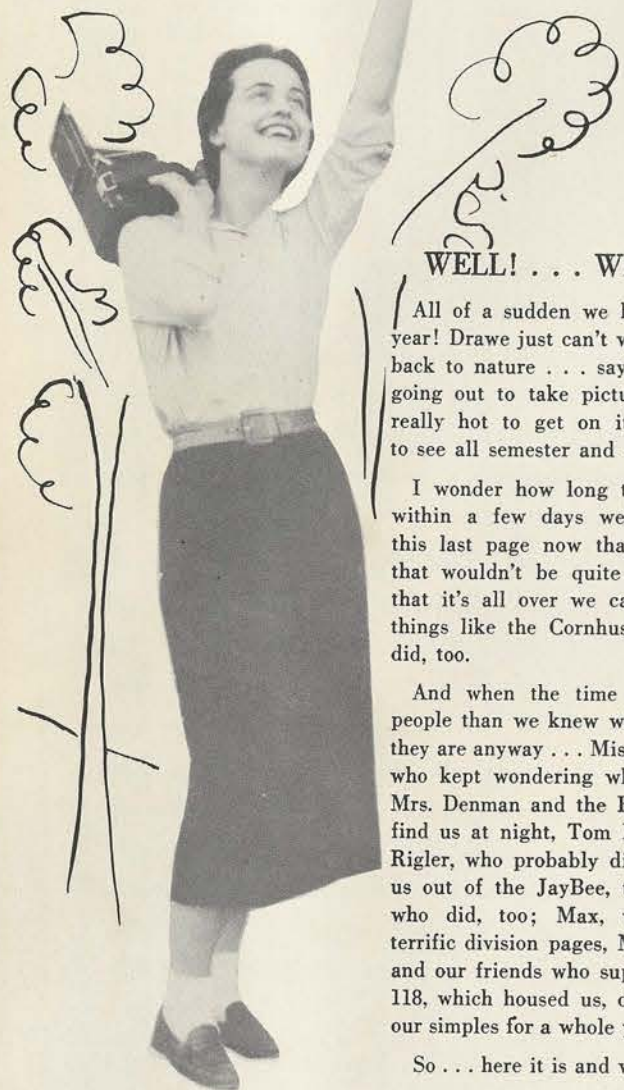 WELL! . . . W
All of a sudden we
year! Drawe just can't
back to nature . . . say
going out to take pictu
really hot to get on i
to see all semester and
I wonder how long t
within a few days we
this last page now tha
that wouldn't be quite
that it's all over we ca
things like the Cornhus
did, too.
And when the time
people than we knew w
they are anyway . . . Mis
who kept wondering wh
Mrs. Denman and the
find us at night, Tom
Rigler, who probably di
us out of the JayBee,
who did, too; Max,
terrific division pages, M
and our friends who sup
118, which housed us, c
our simples for a whole
So . . . here it is and